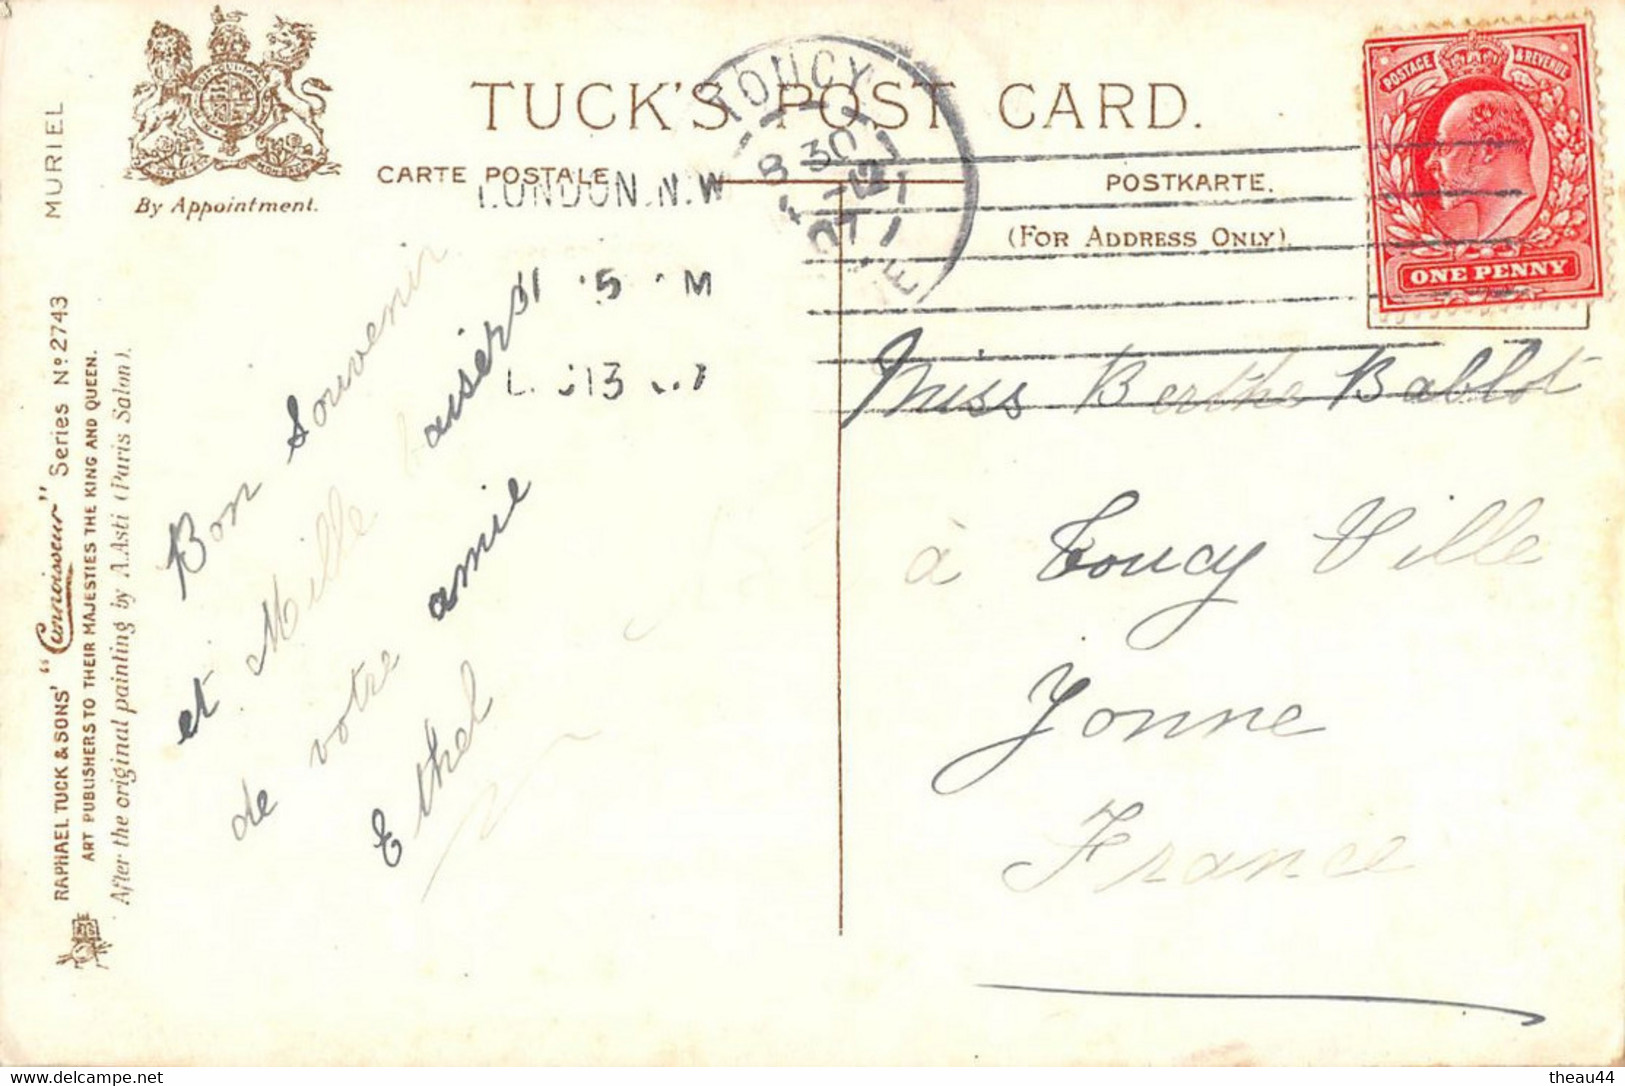 TUCK'S POST CARD.
CARTE POSTALE
POSTKARTE.
(FOR ADDRESS ONLY).
By Appointment.
MURIEL
RAPHAEL TUCK & SONS' "Connoisseur" Series No 2743
ART PUBLISHERS TO THEIR MAJESTIES THE KING AND QUEEN.
After the original painting by A. Asti (Paris Salon).
POSTAGE & REVENUE
ONE PENNY
TOUCY
8 30
LONDON. N.W
Bon Souvenir
et Mille baisers
de votre amie
Ethel
Miss Berthe Bablot
à Toucy Ville
Yonne
France
theau44